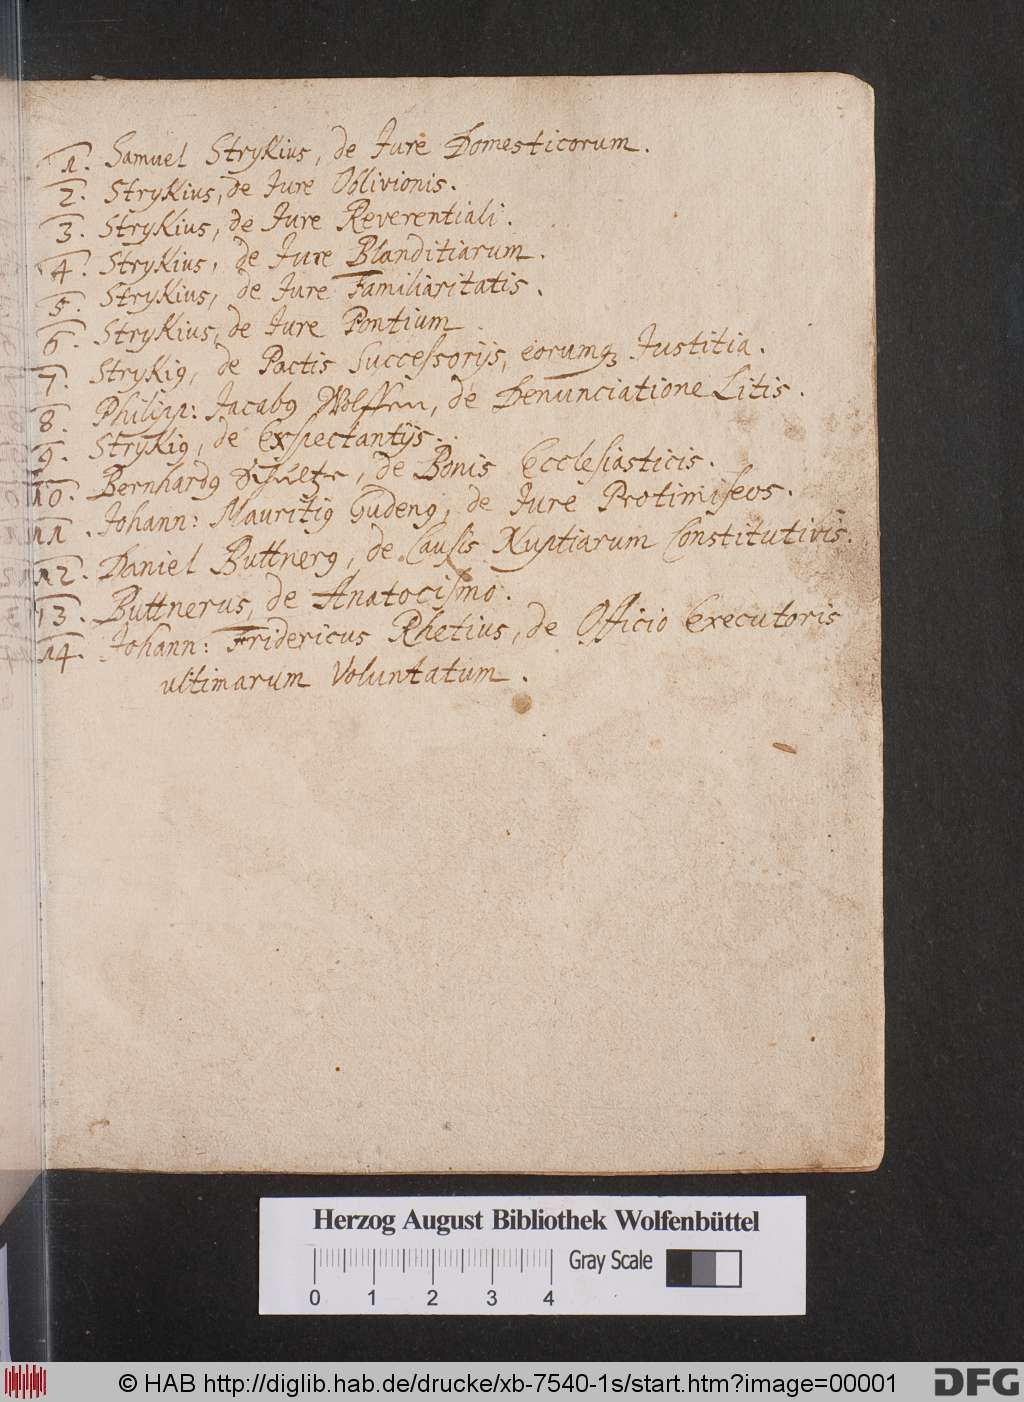 1. Samuel Strykius, de Jure Domesticorum.
2. Strykius, de Jure Oblivionis.
3. Strykius, de Jure Reverentiali.
4. Strykius, de Jure Blanditiarum.
5. Strykius, de Jure Familiaritatis.
6. Strykius, de Jure Pontium.
7. Strykiꝰ, de Pactis Successorijs, eorumqꝫ Justitia.
8. Philipp: Jacabꝰ Wolffen, de Denunciatione Litis.
9. Strykiꝰ, de Exspectantijs.
10. Bernhardꝰ Schultz, de Bonis Ecclesiasticis.
11. Johann: Mauritiꝰ Gudenꝰ, de Jure Protimiseos.
12. Daniel Buttnerꝰ, de Causis Nuptiarum Constitutivis.
13. Buttnerus, de Anatocismo.
14. Johann: Fridericus Rhetius, de Officio Executoris
ultimarum Voluntatum.
Herzog August Bibliothek Wolfenbüttel
Gray Scale
0 1 2 3 4
© HAB http://diglib.hab.de/drucke/xb-7540-1s/start.htm?image=00001
DFG